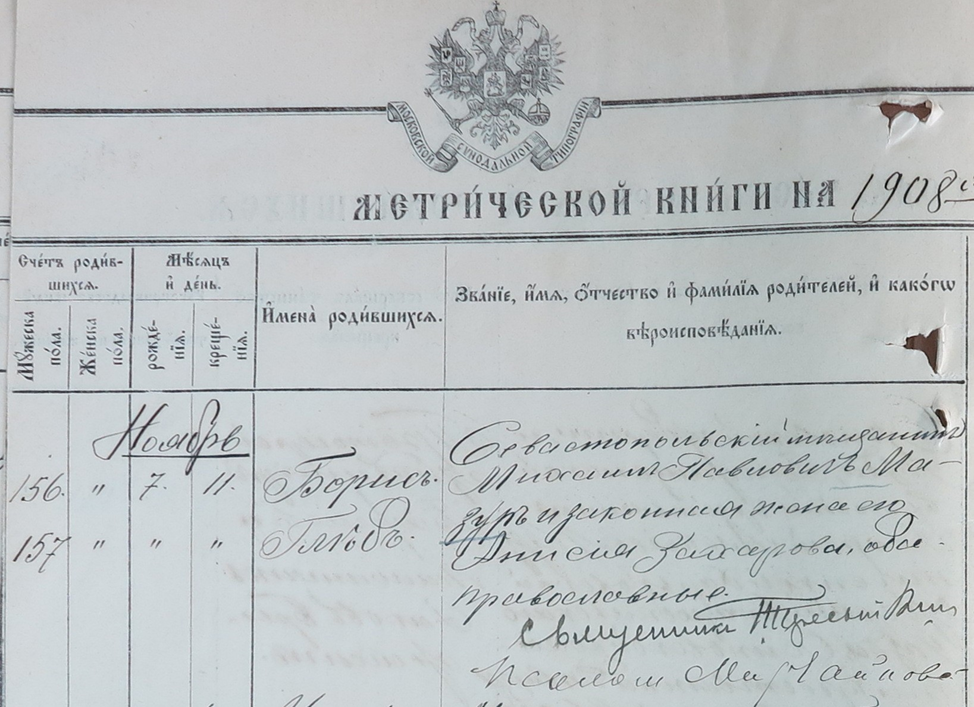 МОСКОВСКОЙ СѴНОДАЛЬНОЙ ТИПОГРАФІИ
МЕТРИ́ЧЕСКОЙ КНИ́ГИ НА 1908
Сче́тъ роди́в-
шихся.
Мѣ́сяцъ
и҆ де́нь.
И҆мена̀ роди́вшихся.
Зва́ніе, и҆́мя, ѻ҆́тчество и҆ фами́лїя роди́телей, и҆ како́гѡ
вѣроисповѣ́данїя.
Мꙋ́жеска
по́ла.
Же́нска
по́ла.
рожде́-
нїя.
креще́-
нїя.
Ноябрь
Севастопольскій мѣщанинъ
156. " 7. 11. Борисъ. Михаилъ Павловичъ Ма-
зуръ и законная жена его
157 " " " Глѣбъ. Анисия Захарова, оба
православные.
Священникъ
Псалом